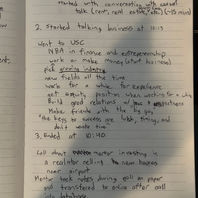 started with conversation with casual
talk (rent, real estate, etc.) (~15 min)
2. started talking business at 10:15
Went to USC
MBA in finance and entrepreneurship
work or make money (start business)
pick growing industry
new fields all the time
work for a while for experience
get equity position when working for a
Build good relations w/ boss
Make friends with the big guy
"the keys to success are luck, timing, and
don't waste time"
3. Ended at 10:40
Call about mentor investing in
a realtor selling homes
near airport
Mentor took notes during call on paper
and transferred to online after call